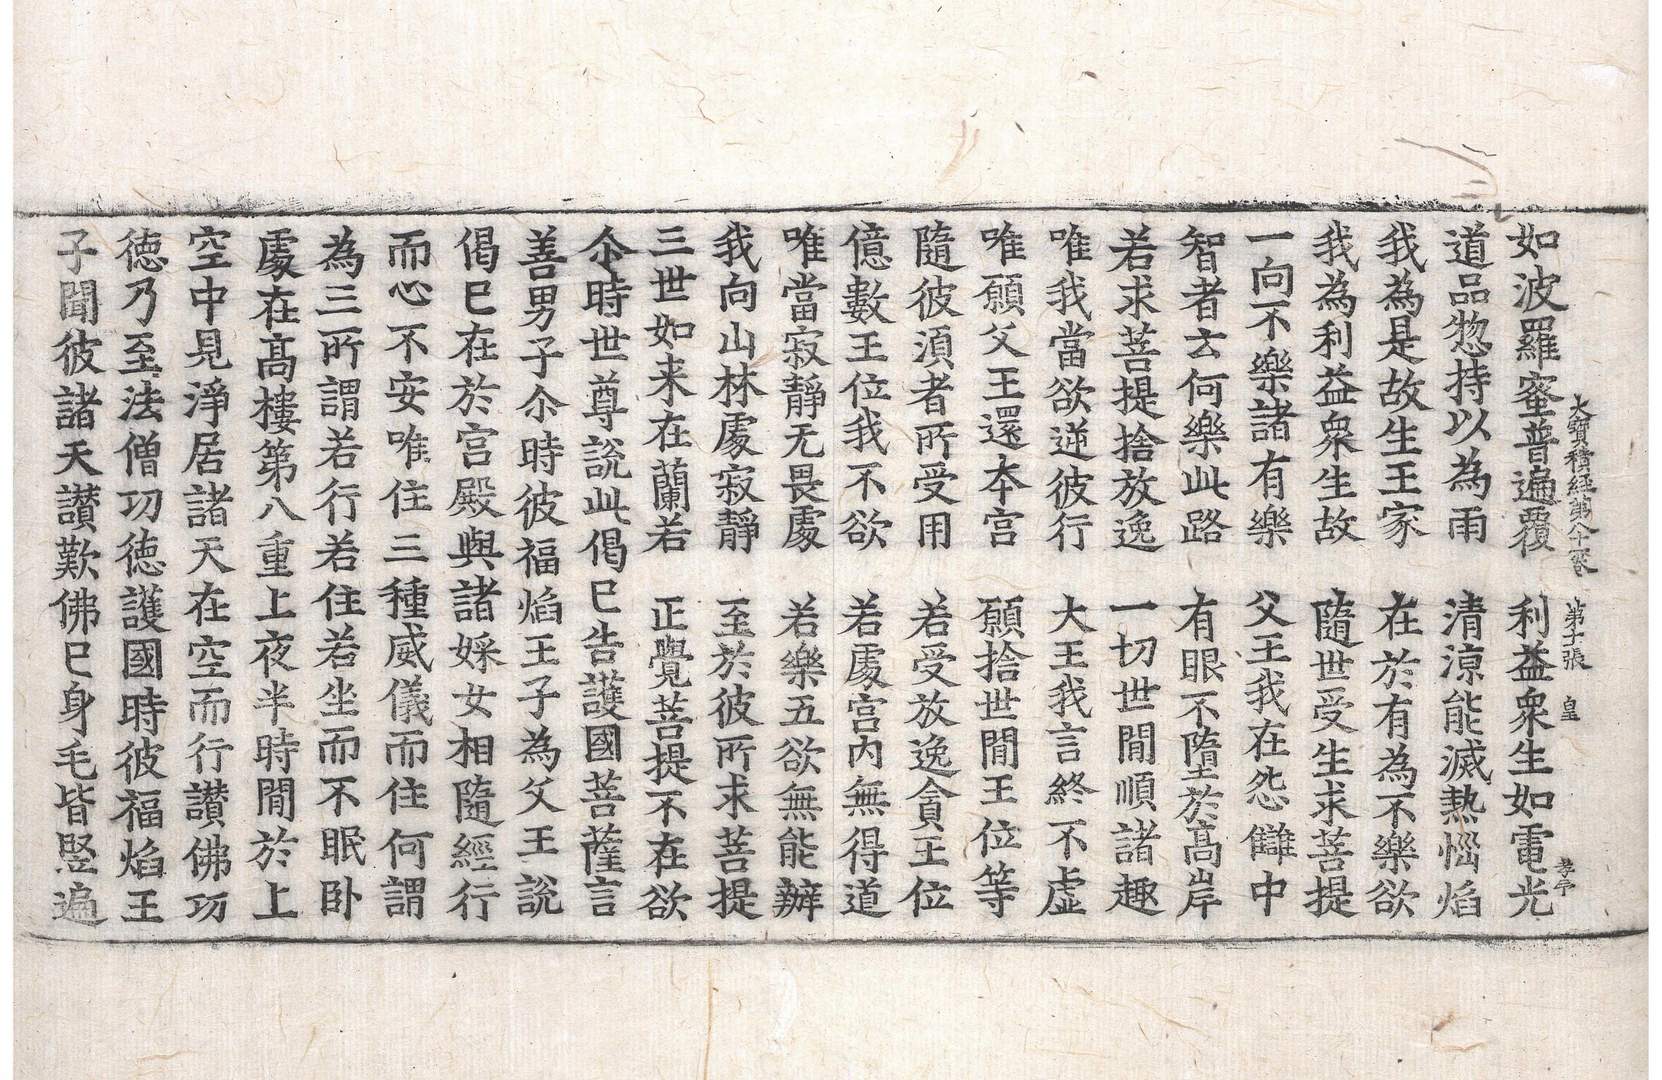 大寶積經第八十卷　第十張　皇　孝卒
如波羅蜜普遍覆　利益衆生如電光
道品惣持以為雨　清涼能滅熱惱焰
我為是故生王家　在於有為不樂欲
我為利益衆生故　隨世受生求菩提
一向不樂諸有樂　父王我在怨讎中
智者云何樂此路　有眼不墮於高岸
若求菩提捨放逸　一切世間順諸趣
唯我當欲逆彼行　大王我言終不虛
唯願父王還本宮　願捨世間王位等
隨彼湏者所受用　若受放逸貪王位
億數王位我不欲　若處宮內無得道
唯當寂靜无畏處　若樂五欲無能辦
我向山林處寂靜　至於彼所求菩提
三世如来在蘭若　正覺菩提不在欲
尒時世尊說此偈已告護國菩薩言
善男子尒時彼福焰王子為父王說
偈已在於宮殿與諸婇女相隨經行
而心不安唯住三種威儀而住何謂
為三所謂若行若住若坐而不眠卧
處在高樓第八重上夜半時間於上
空中見淨居諸天在空而行讃佛功
德乃至法僧功德護國時彼福焰王
子聞彼諸天讃歎佛已身毛皆竪遍